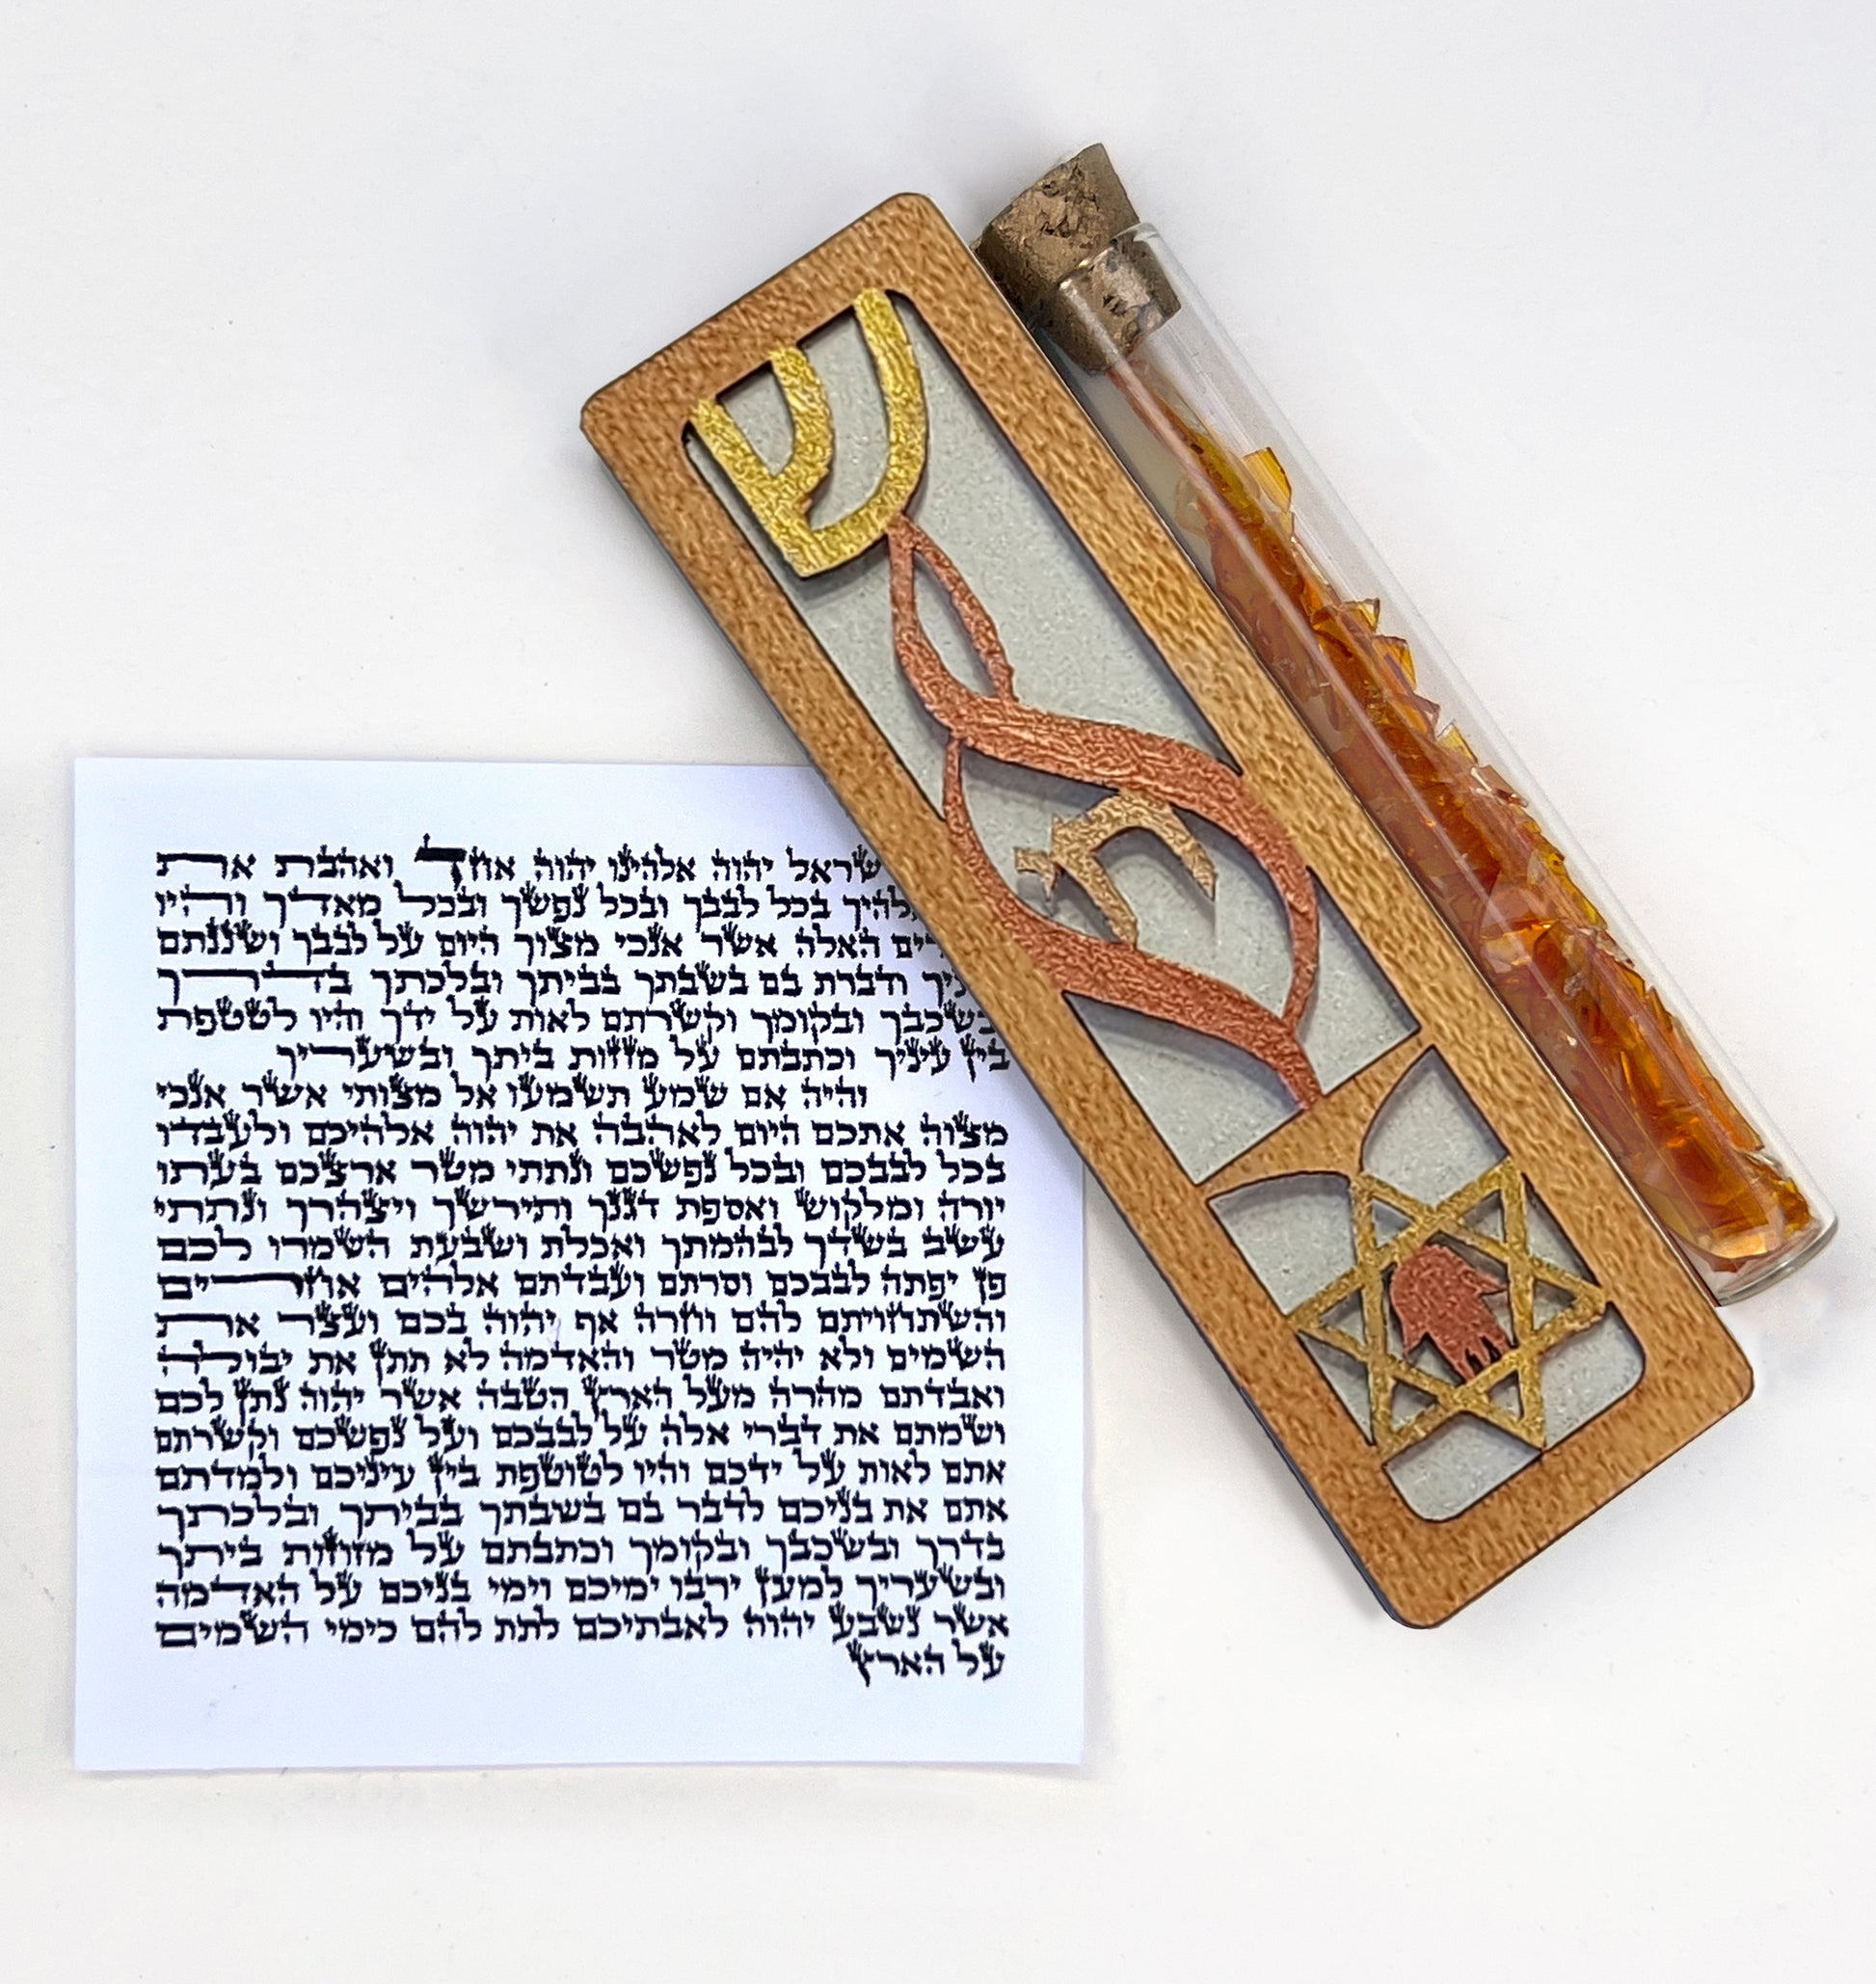 ש
חי
שראל יהוה אלהינו יהוה אחד ואהבת את
להיך בכל לבבך ובכל נפשך ובכל מאדך והיו
רים האלה אשר אנכי מצוך היום על לבבך ושננתם
יך ודברת בם בשבתך בביתך ובלכתך בדרך
בשכבך ובקומך וקשרתם לאות על ידך והיו לטטפת
בין עיניך וכתבתם על מזזות ביתך ובשעריך
והיה אם שמע תשמעו אל מצותי אשר אנכי
מצוה אתכם היום לאהבה את יהוה אלהיכם ולעבדו
בכל לבבכם ובכל נפשכם ונתתי מטר ארצכם בעתו
יורה ומלקוש ואספת דגנך ותירשך ויצהרך ונתתי
עשב בשדך לבהמתך ואכלת ושבעת השמרו לכם
פן יפתה לבבכם וסרתם ועבדתם אלהים אחרים
והשתחויתם להם וחרה אף יהוה בכם ועצר את
השמים ולא יהיה מטר והאדמה לא תתן את יבולה
ואבדתם מהרה מעל הארץ הטבה אשר יהוה נתן לכם
ושמתם את דברי אלה על לבבכם ועל נפשכם וקשרתם
אתם לאות על ידכם והיו לטוטפת בין עיניכם ולמדתם
אתם את בניכם לדבר בם בשבתך בביתך ובלכתך
בדרך ובשכבך ובקומך וכתבתם על מזוזות ביתך
ובשעריך למען ירבו ימיכם וימי בניכם על האדמה
אשר נשבע יהוה לאבתיכם לתת להם כימי השמים
על הארץ